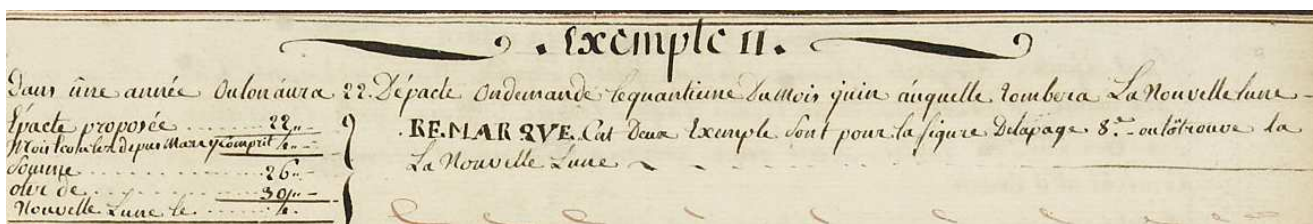 . Exemple II .
Dans une année Oulon aura 22. Dépacte Ondemande lequantieme Dumois juin auquelle tombera La Nouvelle lune -
Epacte proposée ........ 22 „ -
Mois écoulez depuis Mars y comprit 4 „ -
Somme ........ 26 „ -
oter de ........ 30 „ -
Nouvelle Lune le ...... 4.
. REMARQVE. Cet Deux Exemple Sont pour la figure Delapage 8. - ou lô trouve la
La Nouvelle Lune